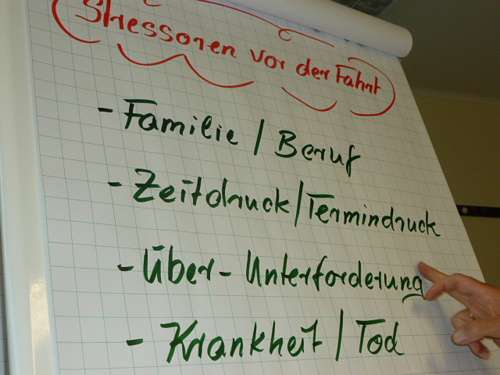 Stressoren vor der Fahrt
- Familie / Beruf
- Zeitdruck / Termindruck
- Über - Unterforderung
- Krankheit / Tod